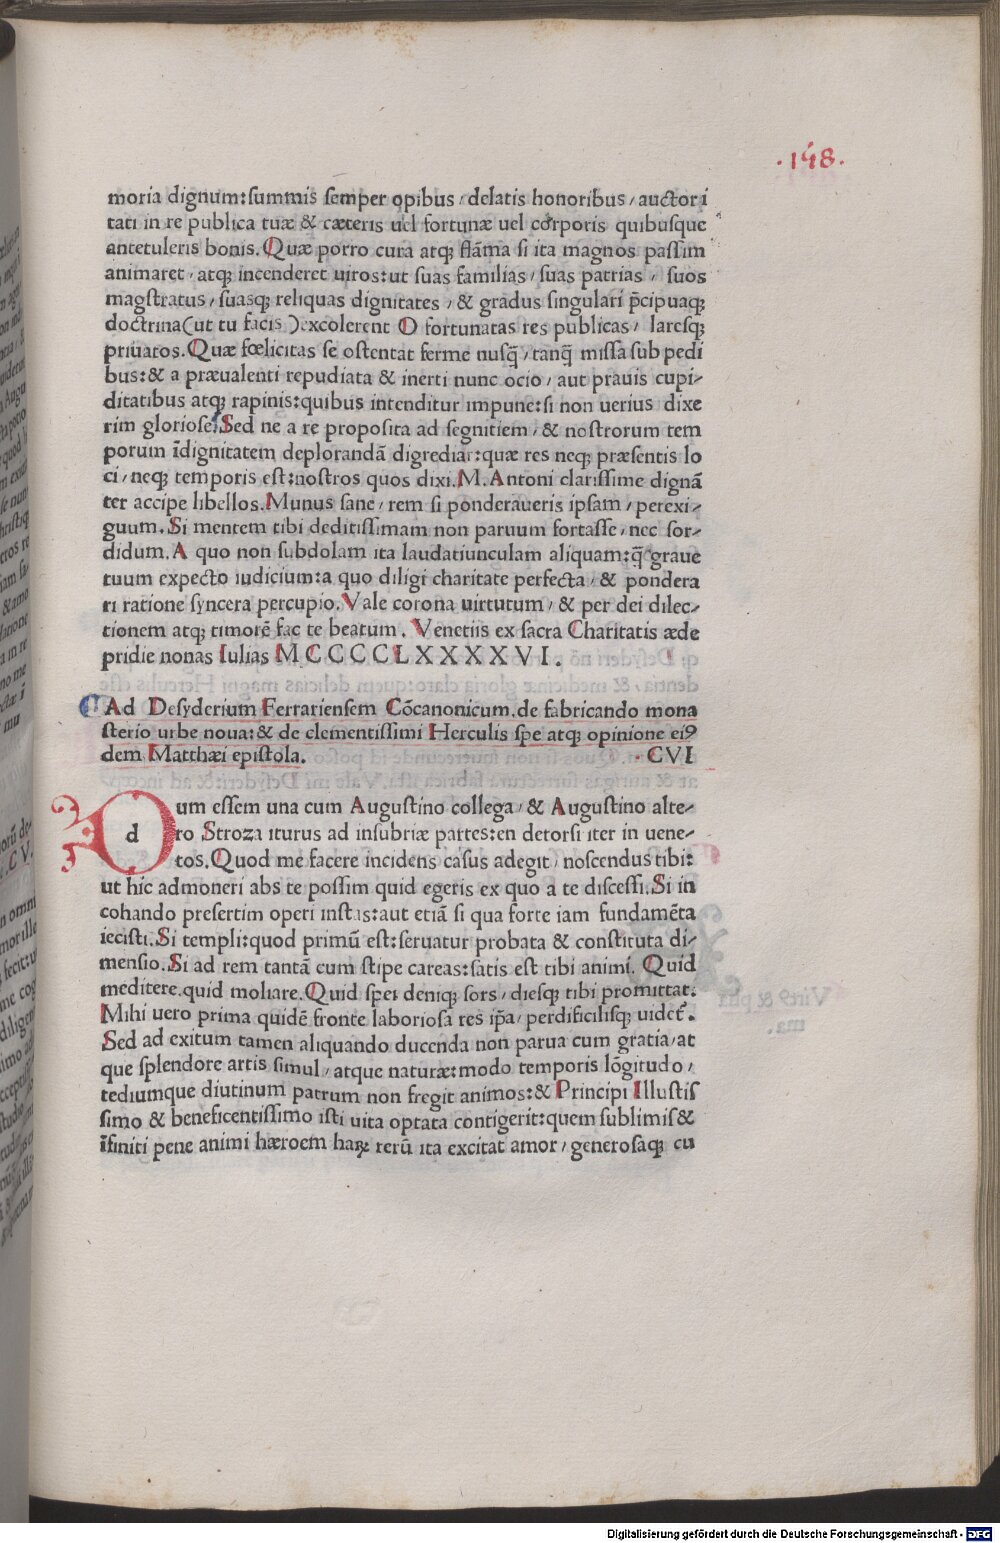 .148.
moria dignum:summis semper opibus/delatis honoribus/auctori
tati in re publica tuæ & cæteris uel fortunæ uel corporis quibusque
antetuleris bonis.Quæ porro cura atqꝫ flãma si ita magnos passim
animaret/atqꝫ incenderet uiros:ut suas familias/suas patrias/ suos
magstratus/suasqꝫ reliquas dignitates/& gradus singulari p̃cipuaqꝫ
doctrina(ut tu facis)excolerent O fortunatas res publicas/ laresqꝫ
priuatos.Quæ fœlicitas se ostentat ferme nusq̃/tanq̃ missa sub pedi
bus:& a præualenti repudiata & inerti nunc ocio/aut prauis cupi-
ditatibus atqꝫ rapinis:quibus intenditur impune:si non uerius dixe
rim gloriose.Sed ne a re proposita ad segnitiem/& nostrorum tem
porum ĩdignitatem deplorandã digrediar:quæ res neqꝫ præsentis lo
ci/neqꝫ temporis est:nostros quos dixi.M.Antoni clarissime dignã
ter accipe libellos.Munus sane/rem si ponderaueris ipsam/perexi-
guum.Si mentem tibi deditissimam non paruum fortasse/nec sor-
didum.A quo non subdolam ita laudatiunculam aliquam:q̃ graue
tuum expecto iudicium:a quo diligi charitate perfecta/& pondera
ri ratione syncera percupio.Vale corona uirtutum/& per dei dilec-
tionem atqꝫ timorẽ fac te beatum. Venetiis ex sacra Charitatis æde
pridie nonas Iulias M CCCC L XXXXVI.
Ad Desyderium Ferrariensem Cõcanonicum.de fabricando mona
sterio urbe noua:& de clementissimi Herculis spe atqꝫ opinione eiꝰ
dem Matthæi epistola. .CVI
d
um essem una cum Augustino collega/& Augustino alte-
ro Stroza iturus ad insubriæ partes:en detorsi iter in uene-
tos.Quod me facere incidens casus adegit/noscendus tibi:
ut hic admoneri abs te possim quid egeris ex quo a te discessi.Si in
cohando presertim operi instas:aut etiã si qua forte iam fundamẽta
iecisti.Si templi:quod primũ est:seruatur probata & constituta di-
mensio.Si ad rem tantã cum stipe careas:satis est tibi animi. Quid
meditere.quid moliare.Quid spei deniqꝫ sors/diesqꝫ tibi promittat:
Mihi uero prima quidẽ fronte laboriosa res ip̃a/perdificilisqꝫ uidet̃.
Sed ad exitum tamen aliquando ducenda non parua cum gratia/at
que splendore artis simul/atque naturæ:modo temporis lõgitudo/
tediumque diutinum patrum non fregit animos:& Principi Illustis
simo & beneficentissimo isti uita optata contigerit:quem sublimis&
ĩfiniti pene animi hæroem haꝝ rerũ ita excitat amor/generosaqꝫ cu
Digitalisierung gefördert durch die Deutsche Forschungsgemeinschaft - DFG